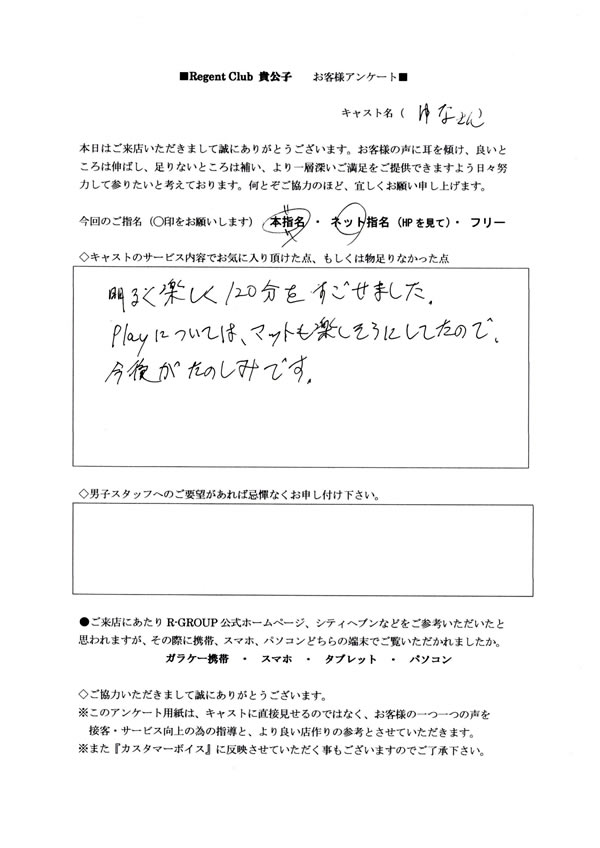 ■Regent Club 貴公子　お客様アンケート■
キャスト名（ ゆなさん ）
本日はご来店いただきまして誠にありがとうございます。お客様の声に耳を傾け、良いと
ころは伸ばし、足りないところは補い、より一層深いご満足をご提供できますよう日々努
力して参りたいと考えております。何とぞご協力のほど、宜しくお願い申し上げます。
今回のご指名（〇印をお願いします） 本指名 ・ ネット指名（HPを見て）・ フリー
◇キャストのサービス内容でお気に入り頂けた点、もしくは物足りなかった点
明るく楽しく120分をすごせました。
Playについては、マットも楽しそうにしてたので、
今後がたのしみです。
◇男子スタッフへのご要望があれば忌憚なくお申し付け下さい。
●ご来店にあたり R-GROUP 公式ホームページ、シティヘブンなどをご参考いただいたと
思われますが、その際に携帯、スマホ、パソコンどちらの端末でご覧いただかれましたか。
ガラケー携帯 ・ スマホ ・ タブレット ・ パソコン
◇ご協力いただきまして誠にありがとうございます。
※このアンケート用紙は、キャストに直接見せるのではなく、お客様の一つ一つの声を
接客・サービス向上の為の指導と、より良い店作りの参考とさせていただきます。
※また『カスタマーボイス』に反映させていただく事もございますのでご了承下さい。